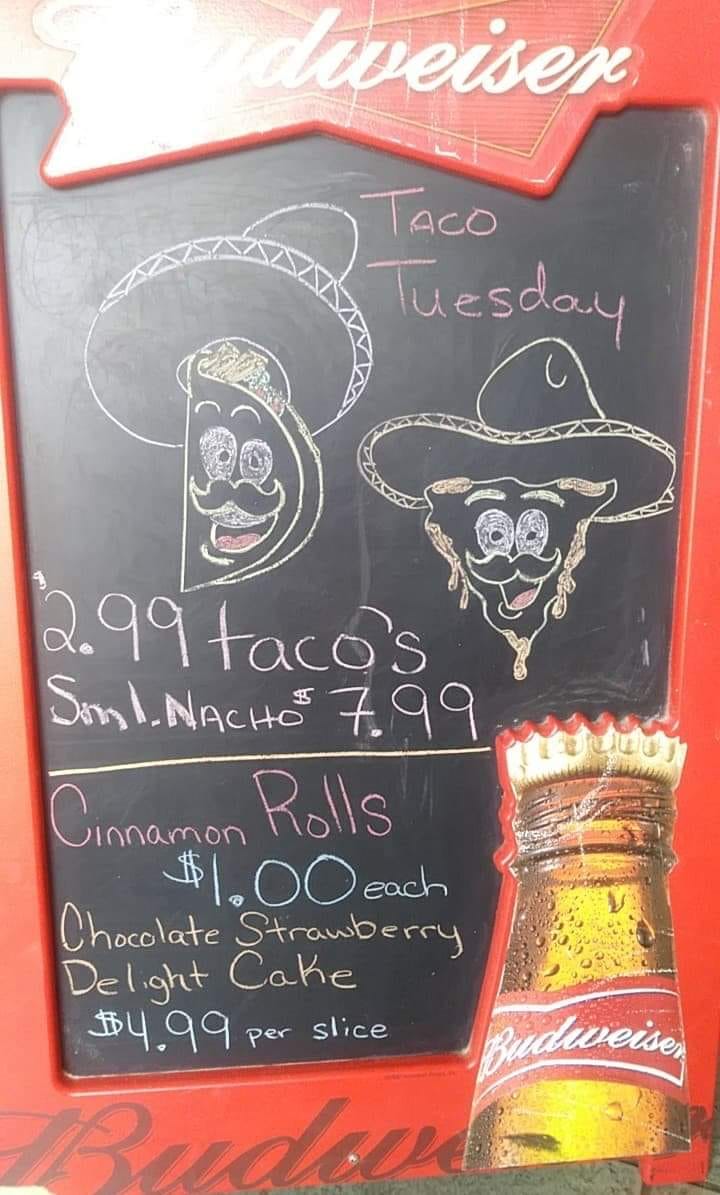 Budweiser
Taco
Tuesday
$2.99 taco's
Sml. NACHO $7.99
Cinnamon Rolls
$1.00 each
Chocolate Strawberry
Delight Cake
$4.99 per slice
Budweiser
Budwe